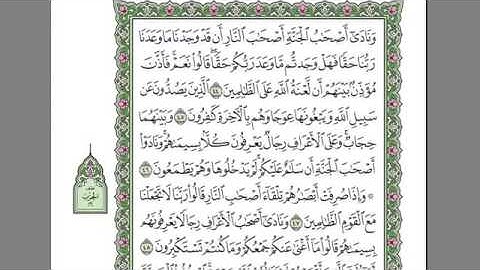 وَنَادَىٰٓ أَصۡحَٰبُ ٱلۡجَنَّةِ أَصۡحَٰبَ ٱلنَّارِ أَن قَدۡ وَجَدۡنَا مَا وَعَدَنَا
رَبُّنَا حَقّٗا فَهَلۡ وَجَدتُّم مَّا وَعَدَ رَبُّكُمۡ حَقّٗاۖ قَالُواْ نَعَمۡۚ فَأَذَّنَ
مُؤَذِّنُۢ بَيۡنَهُمۡ أَن لَّعۡنَةُ ٱللَّهِ عَلَى ٱلظَّٰلِمِينَ ٤٤ ٱلَّذِينَ يَصُدُّونَ عَن
سَبِيلِ ٱللَّهِ وَيَبۡغُونَهَا عِوَجٗا وَهُم بِٱلۡأٓخِرَةِ كَٰفِرُونَ ٤٥ وَبَيۡنَهُمَا
حِجَابٞۚ وَعَلَى ٱلۡأَعۡرَافِ رِجَالٞ يَعۡرِفُونَ كُلَّۢا بِسِيمَىٰهُمۡۚ وَنَادَوۡاْ
أَصۡحَٰبَ ٱلۡجَنَّةِ أَن سَلَٰمٌ عَلَيۡكُمۡۚ لَمۡ يَدۡخُلُوهَا وَهُمۡ يَطۡمَعُونَ ٤٦
۞ وَإِذَا صُرِفَتۡ أَبۡصَٰرُهُمۡ تِلۡقَآءَ أَصۡحَٰبِ ٱلنَّارِ قَالُواْ رَبَّنَا لَا تَجۡعَلۡنَا
مَعَ ٱلۡقَوۡمِ ٱلظَّٰلِمِينَ ٤٧ وَنَادَىٰٓ أَصۡحَٰبُ ٱلۡأَعۡرَافِ رِجَالٗا يَعۡرِفُونَهُم
بِسِيمَىٰهُمۡ قَالُواْ مَآ أَغۡنَىٰ عَنكُمۡ جَمۡعُكُمۡ وَمَا كُنتُمۡ تَسۡتَكۡبِرُونَ ٤٨